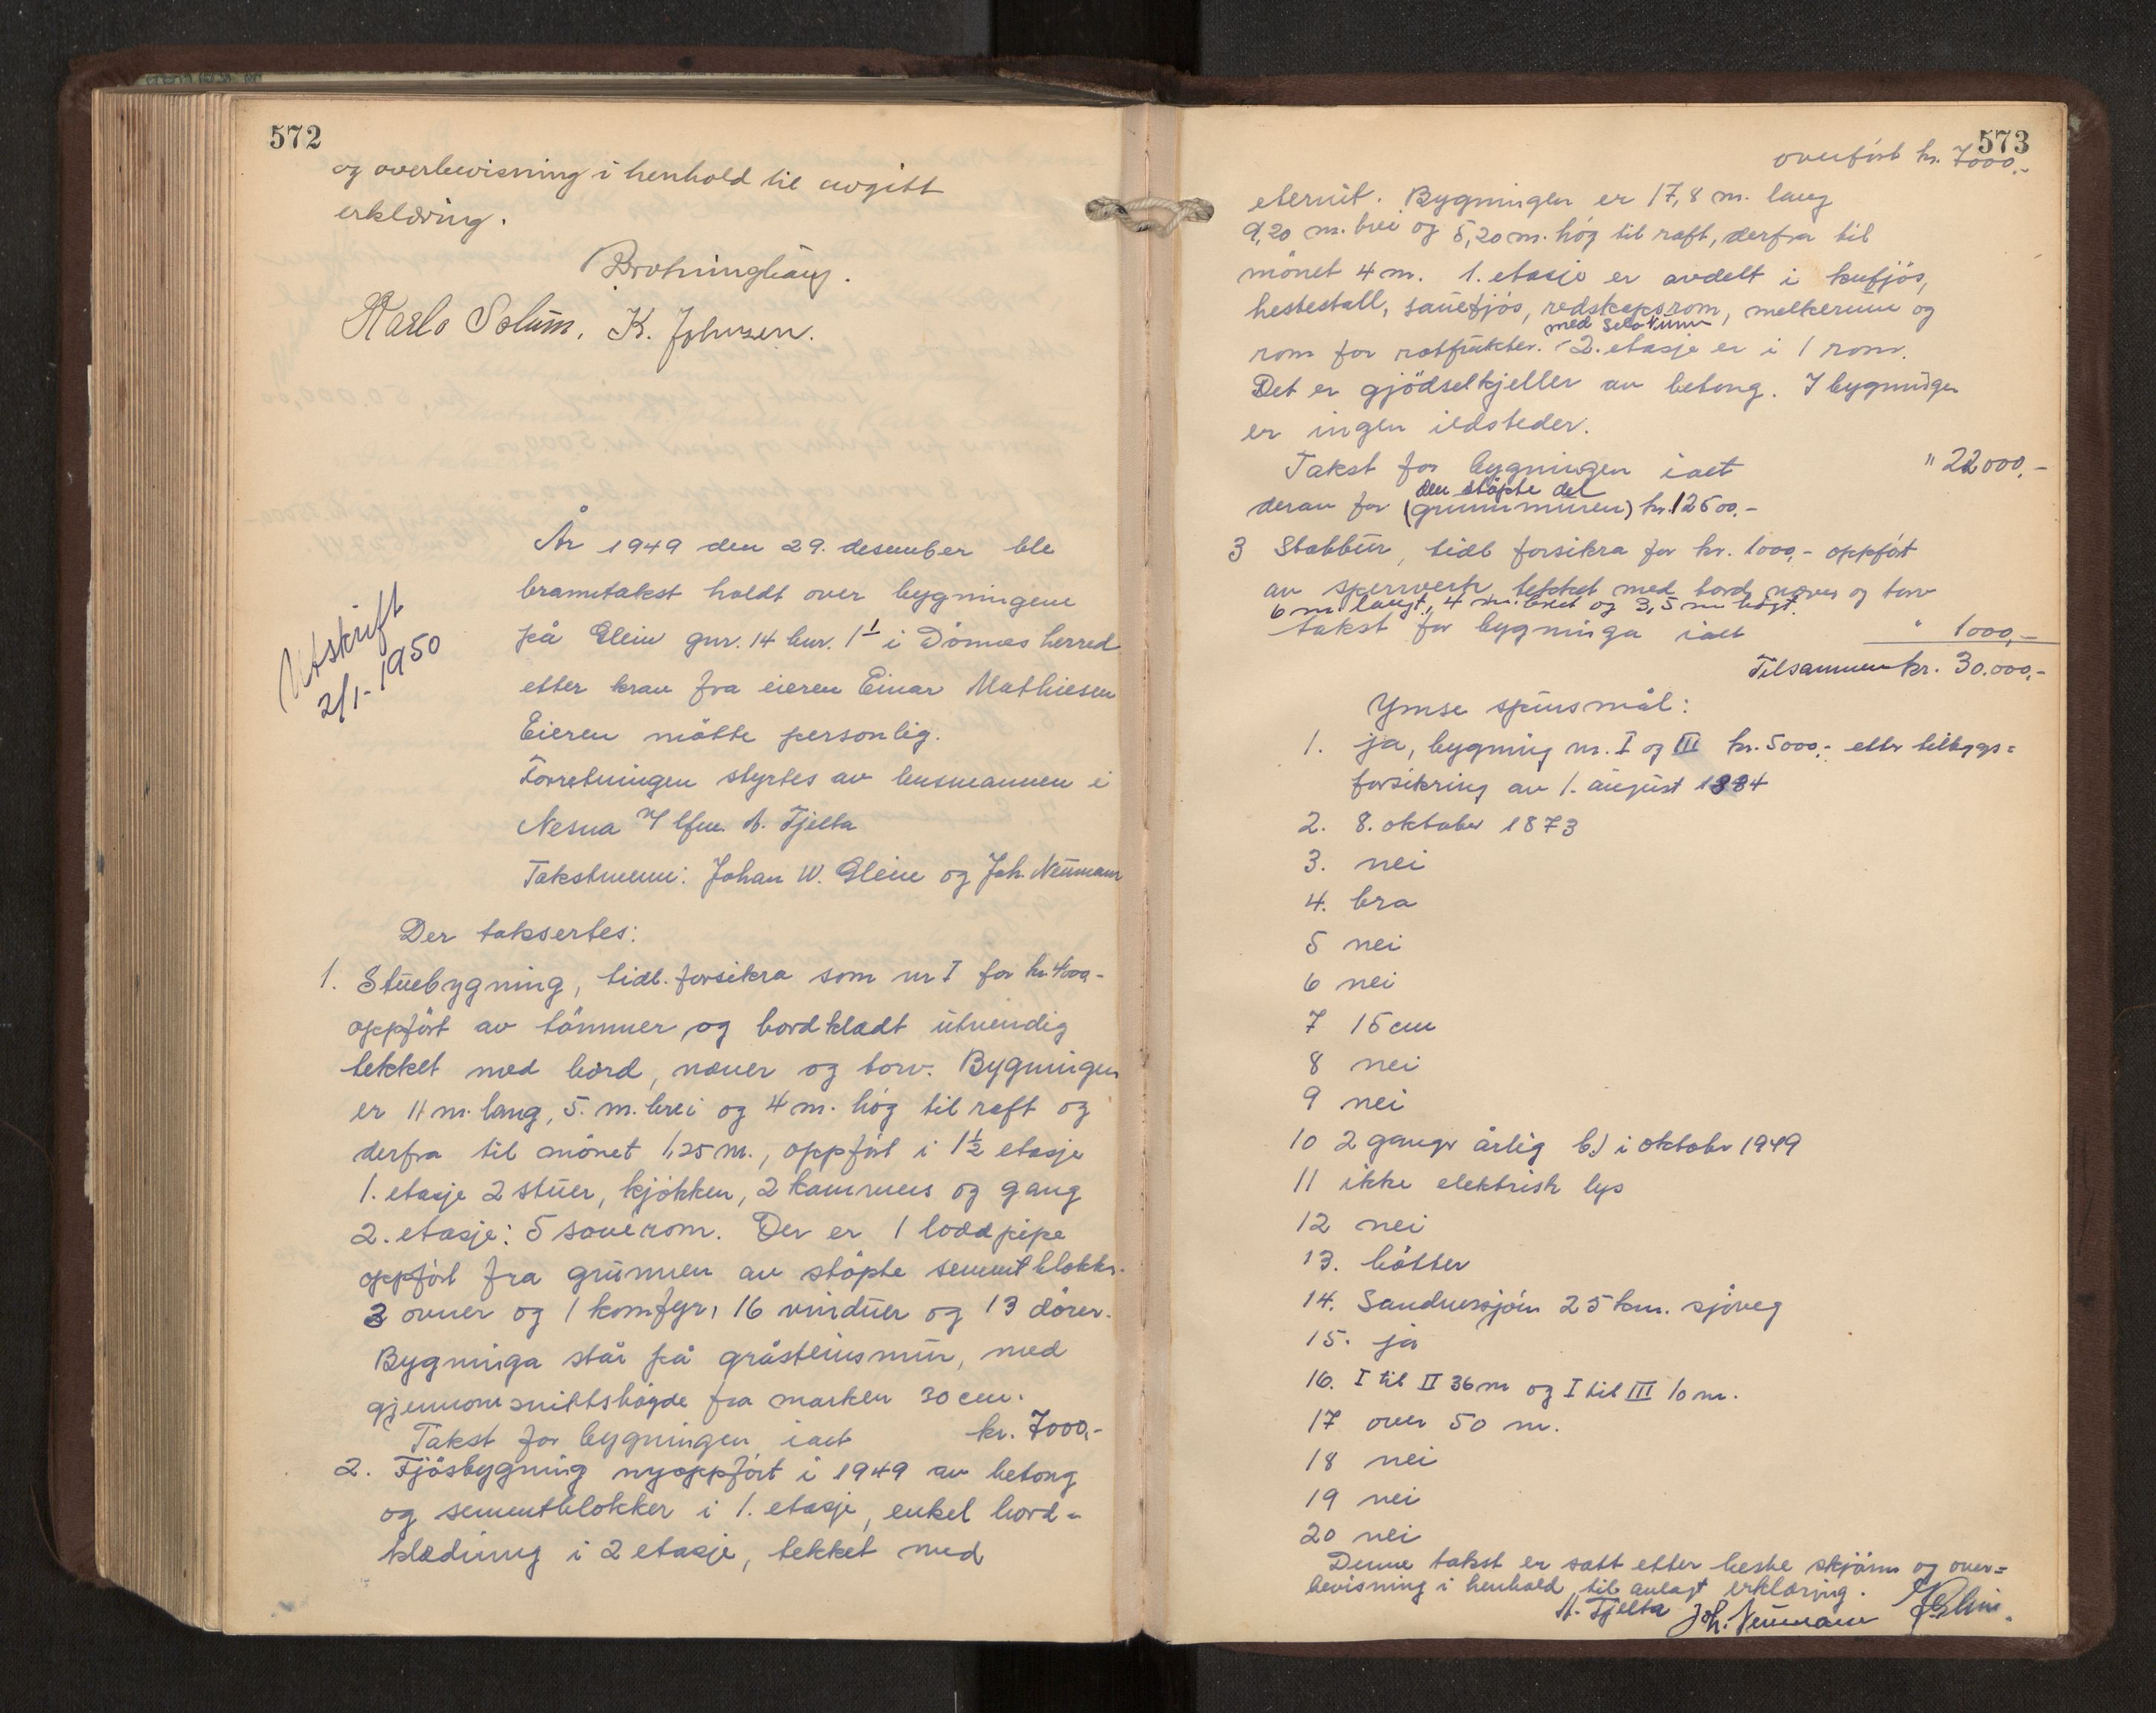 572
og overbevisning i henhold til avgitt
erklæring.
Karlo Solum. K. Johnsen.
Utskrift
2/1-1950
År 1949 den 29. desember ble
branntakst holdt over bygningene
på Glein gnr. 14 bnr. 1 i Dønnes herred
etter krav fra eieren Einar Mathiesen
Eieren møtte personlig.
Forretningen styrtes av lensmannen i
Nesna v/ lfm. A. Fjelta
Takstmenn: Johan W. Glein og Joh. Neumann
Der taksertes:
1. Stuebygning, tidl. forsikra som nr I for kr 4000-
oppført av tømmer og bordkledt utvendig
tekket med bord, never og torv. Bygningen
er 11 m. lang, 5. m. brei og 4 m. høg til raft og
derfra til mønet 1,25 m., oppført i 1½ etasje
1. etasje 2 stuer, kjøkken, 2 kammers og gang
2. etasje: 5 soverom. Der er 1 loddpipe
oppført fra grunnen av støpte sementblokker.
3 ovner og 1 komfyr, 16 vinduer og 13 dører.
Bygninga står på gråsteinsmur, med
gjennomsnittshøgde fra marken 30 cm.
Takst for bygningen ialt kr. 7000,-
2. Fjøsbygning nyoppført i 1949 av betong
og sementblokker i 1. etasje, enkel bord-
kledning i 2 etasje, tekket med
573
overført kr. 7000.-
eternit. Bygningen er 17,8 m. lang
9,20 m. brei og 5,20 m. høg til raft, derfra til
mønet 4 m. 1. etasje er avdelt i kufjøs,
hestestall, sauefjøs, redskapsrom, melkerum og
med silo
rom for rotfrukter. 2. etasje er i 1 rom.
Det er gjødselkjeller av betong. I bygningen
er ingen ildsteder.
Takst for bygningen ialt " 22000,-
den støpte del
derav for (grunnmuren) kr. 12500.-
3 Stabbur, tidl forsikra for kr. 1000,- oppført
av sperrverk tekket med bord, never og torv
6 m. langt, 4 m. breit og 3,5 m høgt.
takst for bygninga ialt " 1000,-
Tilsammen kr. 30.000,-
Ymse spursmål:
1. ja, bygning nr. I og III kr. 5000,- etter tilbygs=
forsikring av 1. august 1884
2. 8. oktober 1873
3. nei
4. bra
5 nei
6 nei
7 15 cm
8 nei
9 nei
10 2 ganger årlig b.) i oktober 1949
11 ikke elektrisk lys
12 nei
13. bøtter
14. Sandnessjøen 25 km. sjøveg
15. ja
16. I til II 36 m og I til III 10 m.
17 over 50 m.
18 nei
19 nei
20 nei
Denne takst er satt etter beste skjønn og over=
bevisning i henhold til avlagt erklæring.
A. Fjelta Joh. Neumann